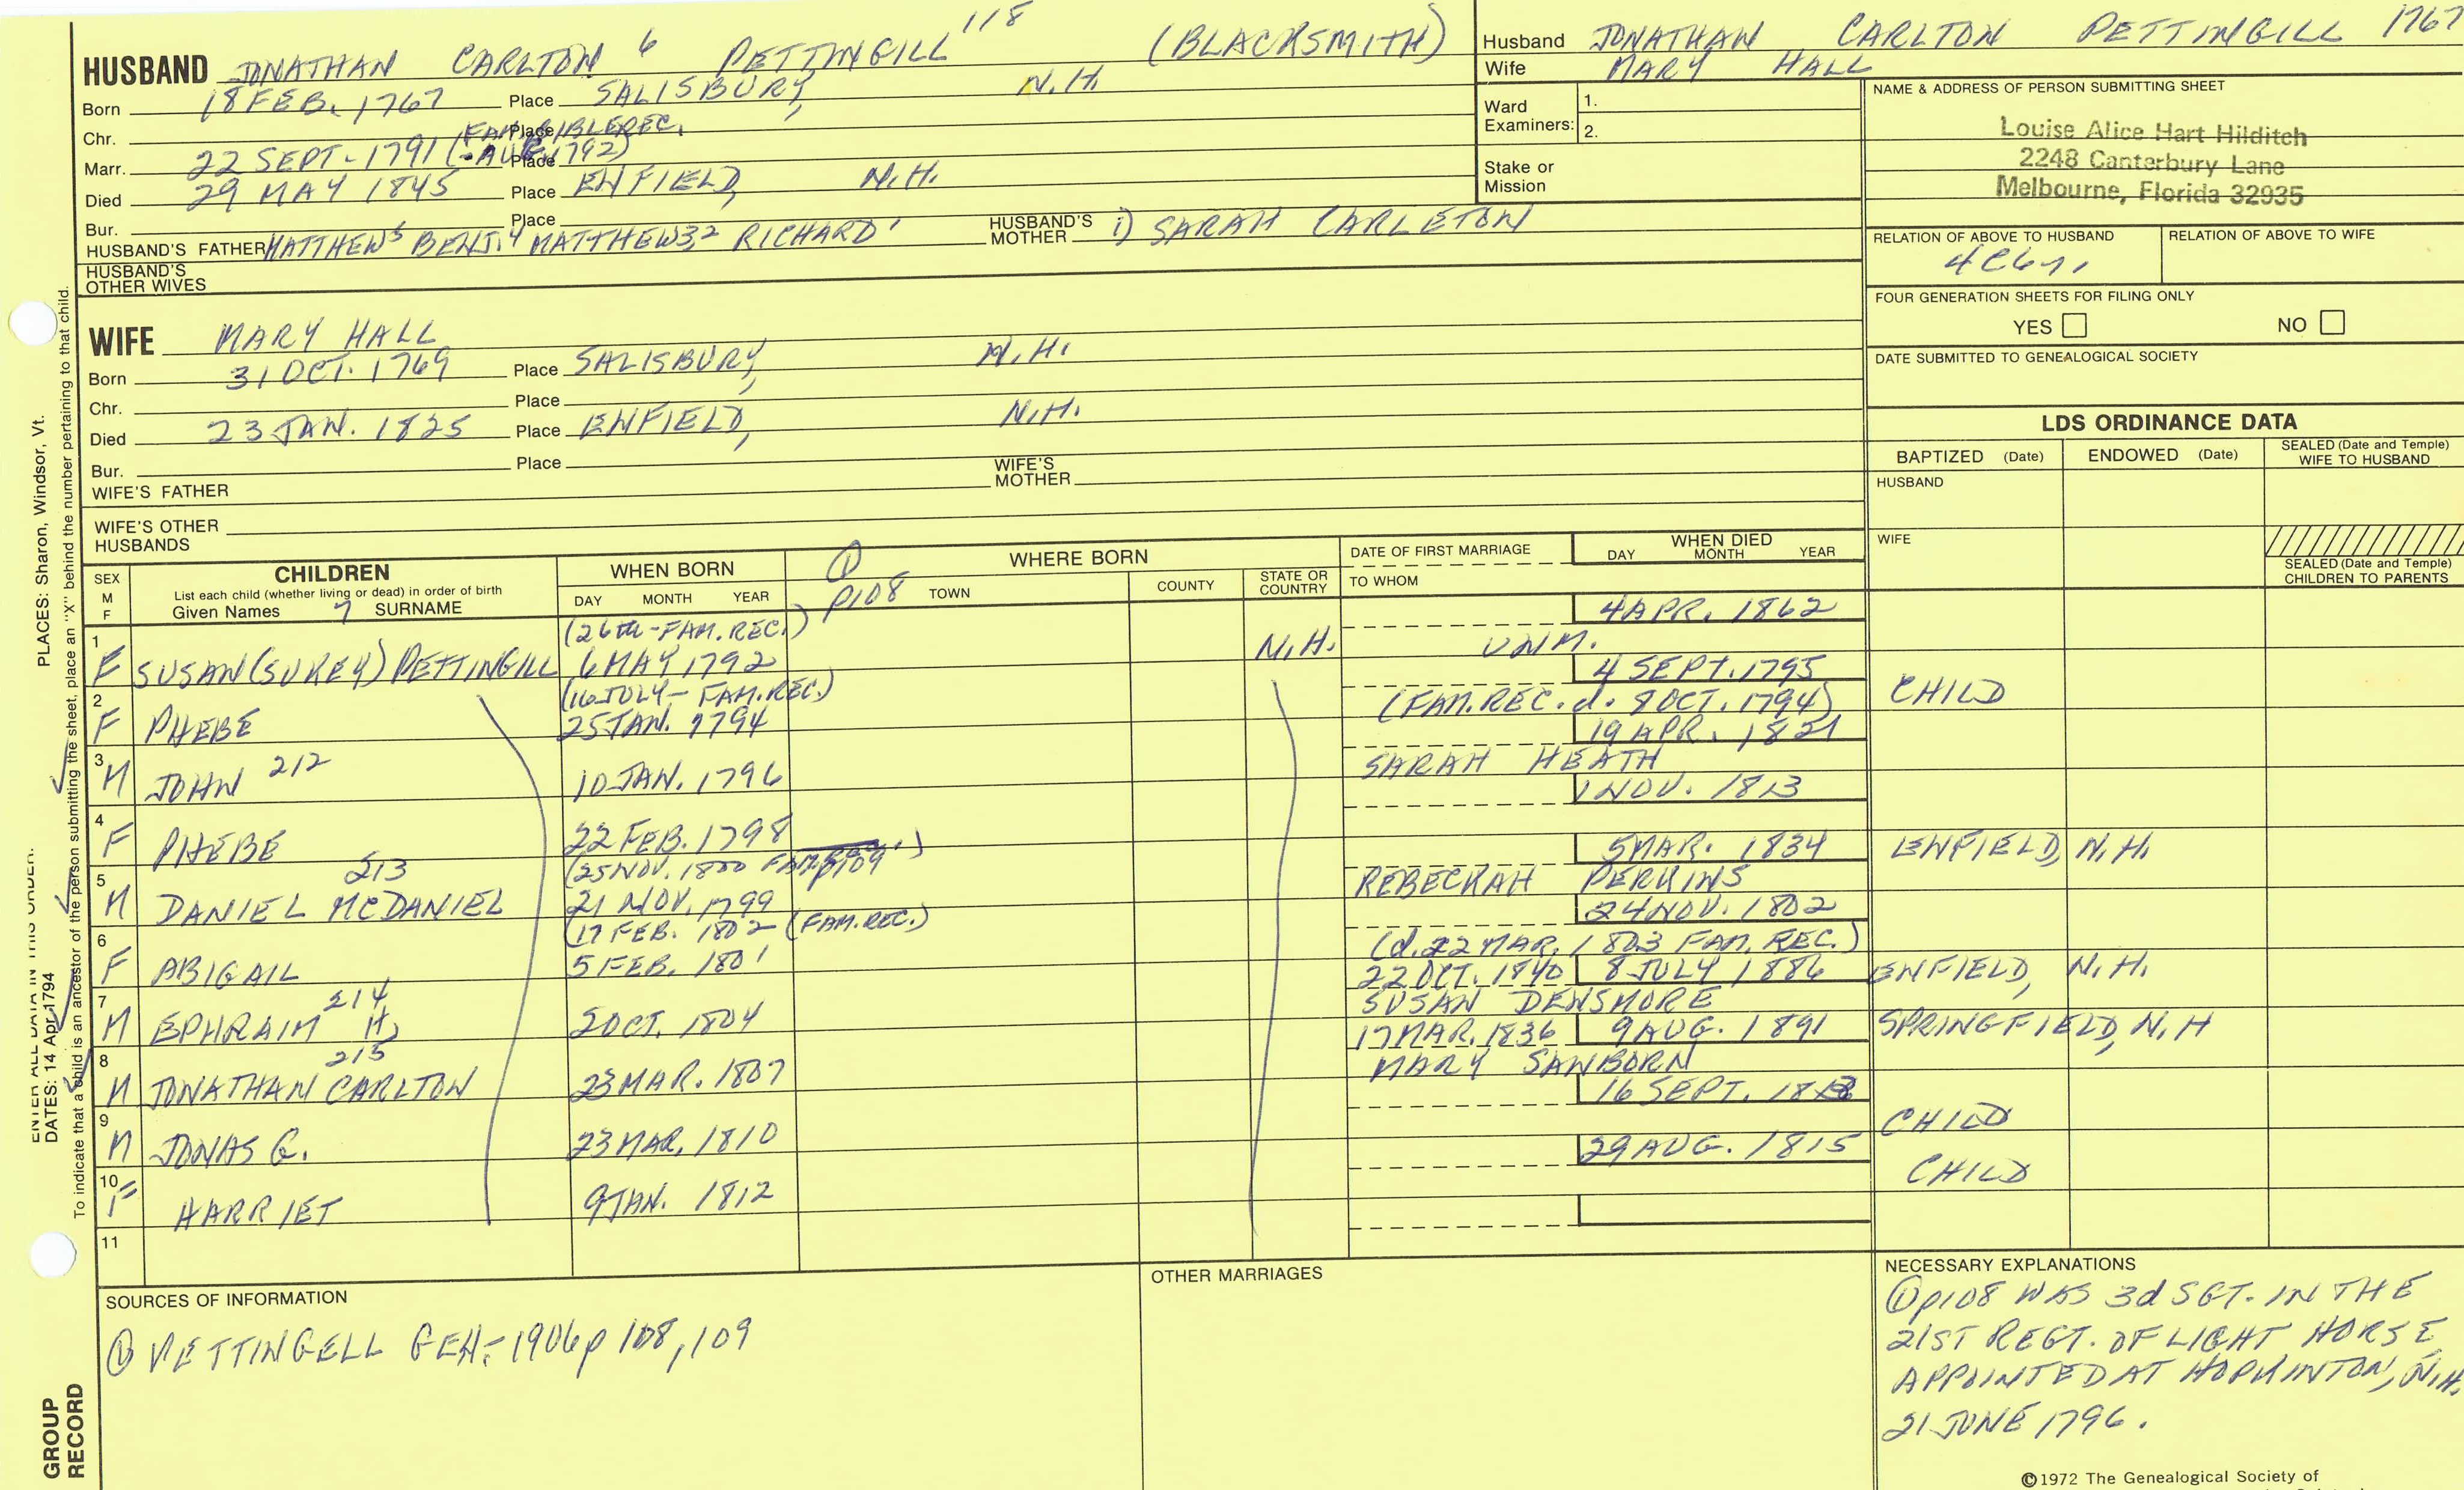 HUSBAND JONATHAN CARLTON 6 PETTINGILL 118 (BLACKSMITH)
Born 18 FEB. 1767 Place SALISBURY, N.H.
Chr. Place
(FAM. BIBLE REC.
Marr. 22 SEPT - 1791 (-AUG 1792) Place
Died 29 MAY 1845 Place ENFIELD, N.H.
Bur. Place
HUSBAND'S FATHER MATTHEW5 BENJ.4 MATTHEW3,2 RICHARD1 HUSBAND'S MOTHER 1) SARAH CARLETON
HUSBAND'S OTHER WIVES
Husband JONATHAN CARLTON PETTINGILL 1767
Wife MARY HALL
Ward Examiners: 1.
2.
Stake or Mission
NAME & ADDRESS OF PERSON SUBMITTING SHEET
Louise Alice Hart Hilditch
2248 Canterbury Lane
Melbourne, Florida 32935
RELATION OF ABOVE TO HUSBAND RELATION OF ABOVE TO WIFE
FOUR GENERATION SHEETS FOR FILING ONLY
YES NO
DATE SUBMITTED TO GENEALOGICAL SOCIETY
WIFE MARY HALL
Born 31 OCT. 1769 Place SALISBURY, N.H.
Chr. Place
Died 23 JAN. 1825 Place ENFIELD, N.H.
Bur. Place
WIFE'S FATHER WIFE'S MOTHER
WIFE'S OTHER HUSBANDS
LDS ORDINANCE DATA
BAPTIZED (Date) ENDOWED (Date) SEALED (Date and Temple) WIFE TO HUSBAND
HUSBAND
WIFE
SEALED (Date and Temple) CHILDREN TO PARENTS
SEX M F
CHILDREN
List each child (whether living or dead) in order of birth
Given Names 7 SURNAME
WHEN BORN
DAY MONTH YEAR
① p108
WHERE BORN
TOWN COUNTY STATE OR COUNTRY
DATE OF FIRST MARRIAGE
TO WHOM
WHEN DIED
DAY MONTH YEAR
(26th-FAM. REC.) 4 APR. 1862
1 F SUSAN (SUKEY) PETTINGILL 6 MAY 1792 N.H. UNM.
(16 JULY - FAM. REC.) 4 SEPT. 1795
2 F PHEBE 25 JAN. 1794 (FAM. REC. d. 8 OCT. 1794) CHILD
19 APR. 1821
3 M JOHN 212 10 JAN. 1796 SARAH HEATH
1 NOV. 1813
4 F PHEBE 22 FEB. 1798
213 (25 NOV. 1800 FAM. REC.) p109 5 MAR. 1834 ENFIELD, N.H.
5 M DANIEL MCDANIEL 21 NOV. 1799 REBECKAH PERKINS
(17 FEB. 1802 (FAM. REC.) 24 NOV. 1802
6 F ABIGAIL 5 FEB. 1801 (d. 22 MAR. 1803 FAM. REC.)
214 22 OCT. 1840 8 JULY 1886 ENFIELD, N.H.
7 M EPHRAIM H. 2 OCT. 1804 SUSAN DENSMORE
215 17 MAR. 1836 9 AUG. 1891 SPRINGFIELD, N.H
8 M JONATHAN CARLTON 23 MAR. 1807 MARY SANBORN
16 SEPT.
9 M JONAS G. 23 MAR. 1810 CHILD
29 AUG. 1815
10 F HARRIET 9 JAN. 1812 CHILD
11
SOURCES OF INFORMATION
① PETTINGELL GEN.-1906 p 108, 109
OTHER MARRIAGES
NECESSARY EXPLANATIONS
① p108 WAS 3d SGT. IN THE
21ST REGT. OF LIGHT HORSE
APPOINTED AT HOPKINTON, N.H.
21 JUNE 1796.
©1972 The Genealogical Society of
PLACES: Sharon, Windsor, Vt.
ENTER ALL DATA IN THIS ORDER:
DATES: 14 Apr 1794
To indicate that a child is an ancestor of the person submitting the sheet, place an "X" behind the number pertaining to that child.
GROUP RECORD